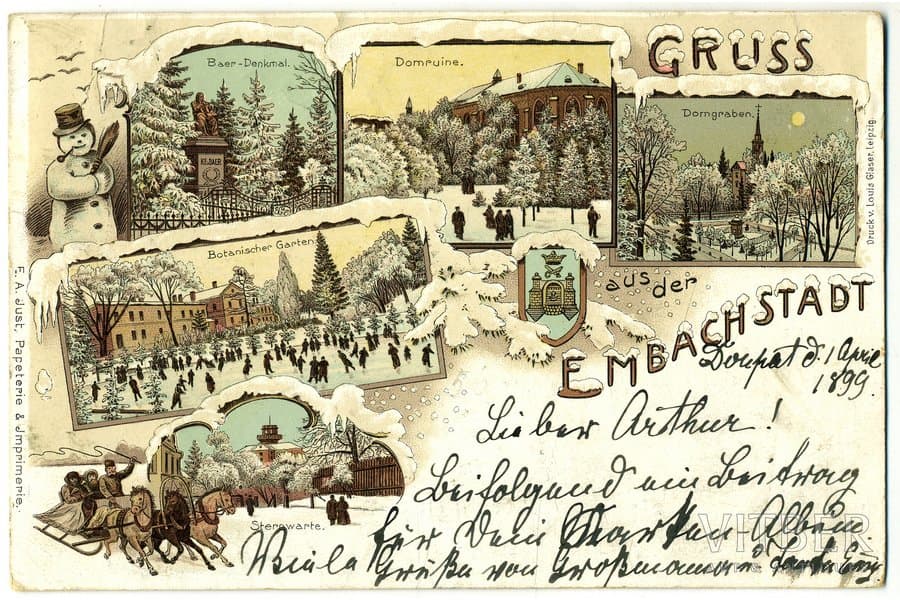 Baer-Denkmal.
K.E.v.BAER
Domruine.
GRUSS
Domgraben.
Botanischer Garten.
aus der
EMBACHSTADT
Sternwarte.
Druck v. Louis Glaser, Leipzig.
E. A. Just, Papeterie & Jmprimerie.
Dorpat d. 1 April
1899.
Lieber Arthur!
Beifolgend ein Beitrag
für Dein Marken Album.
Viele Grüße von Großmama
VITBER